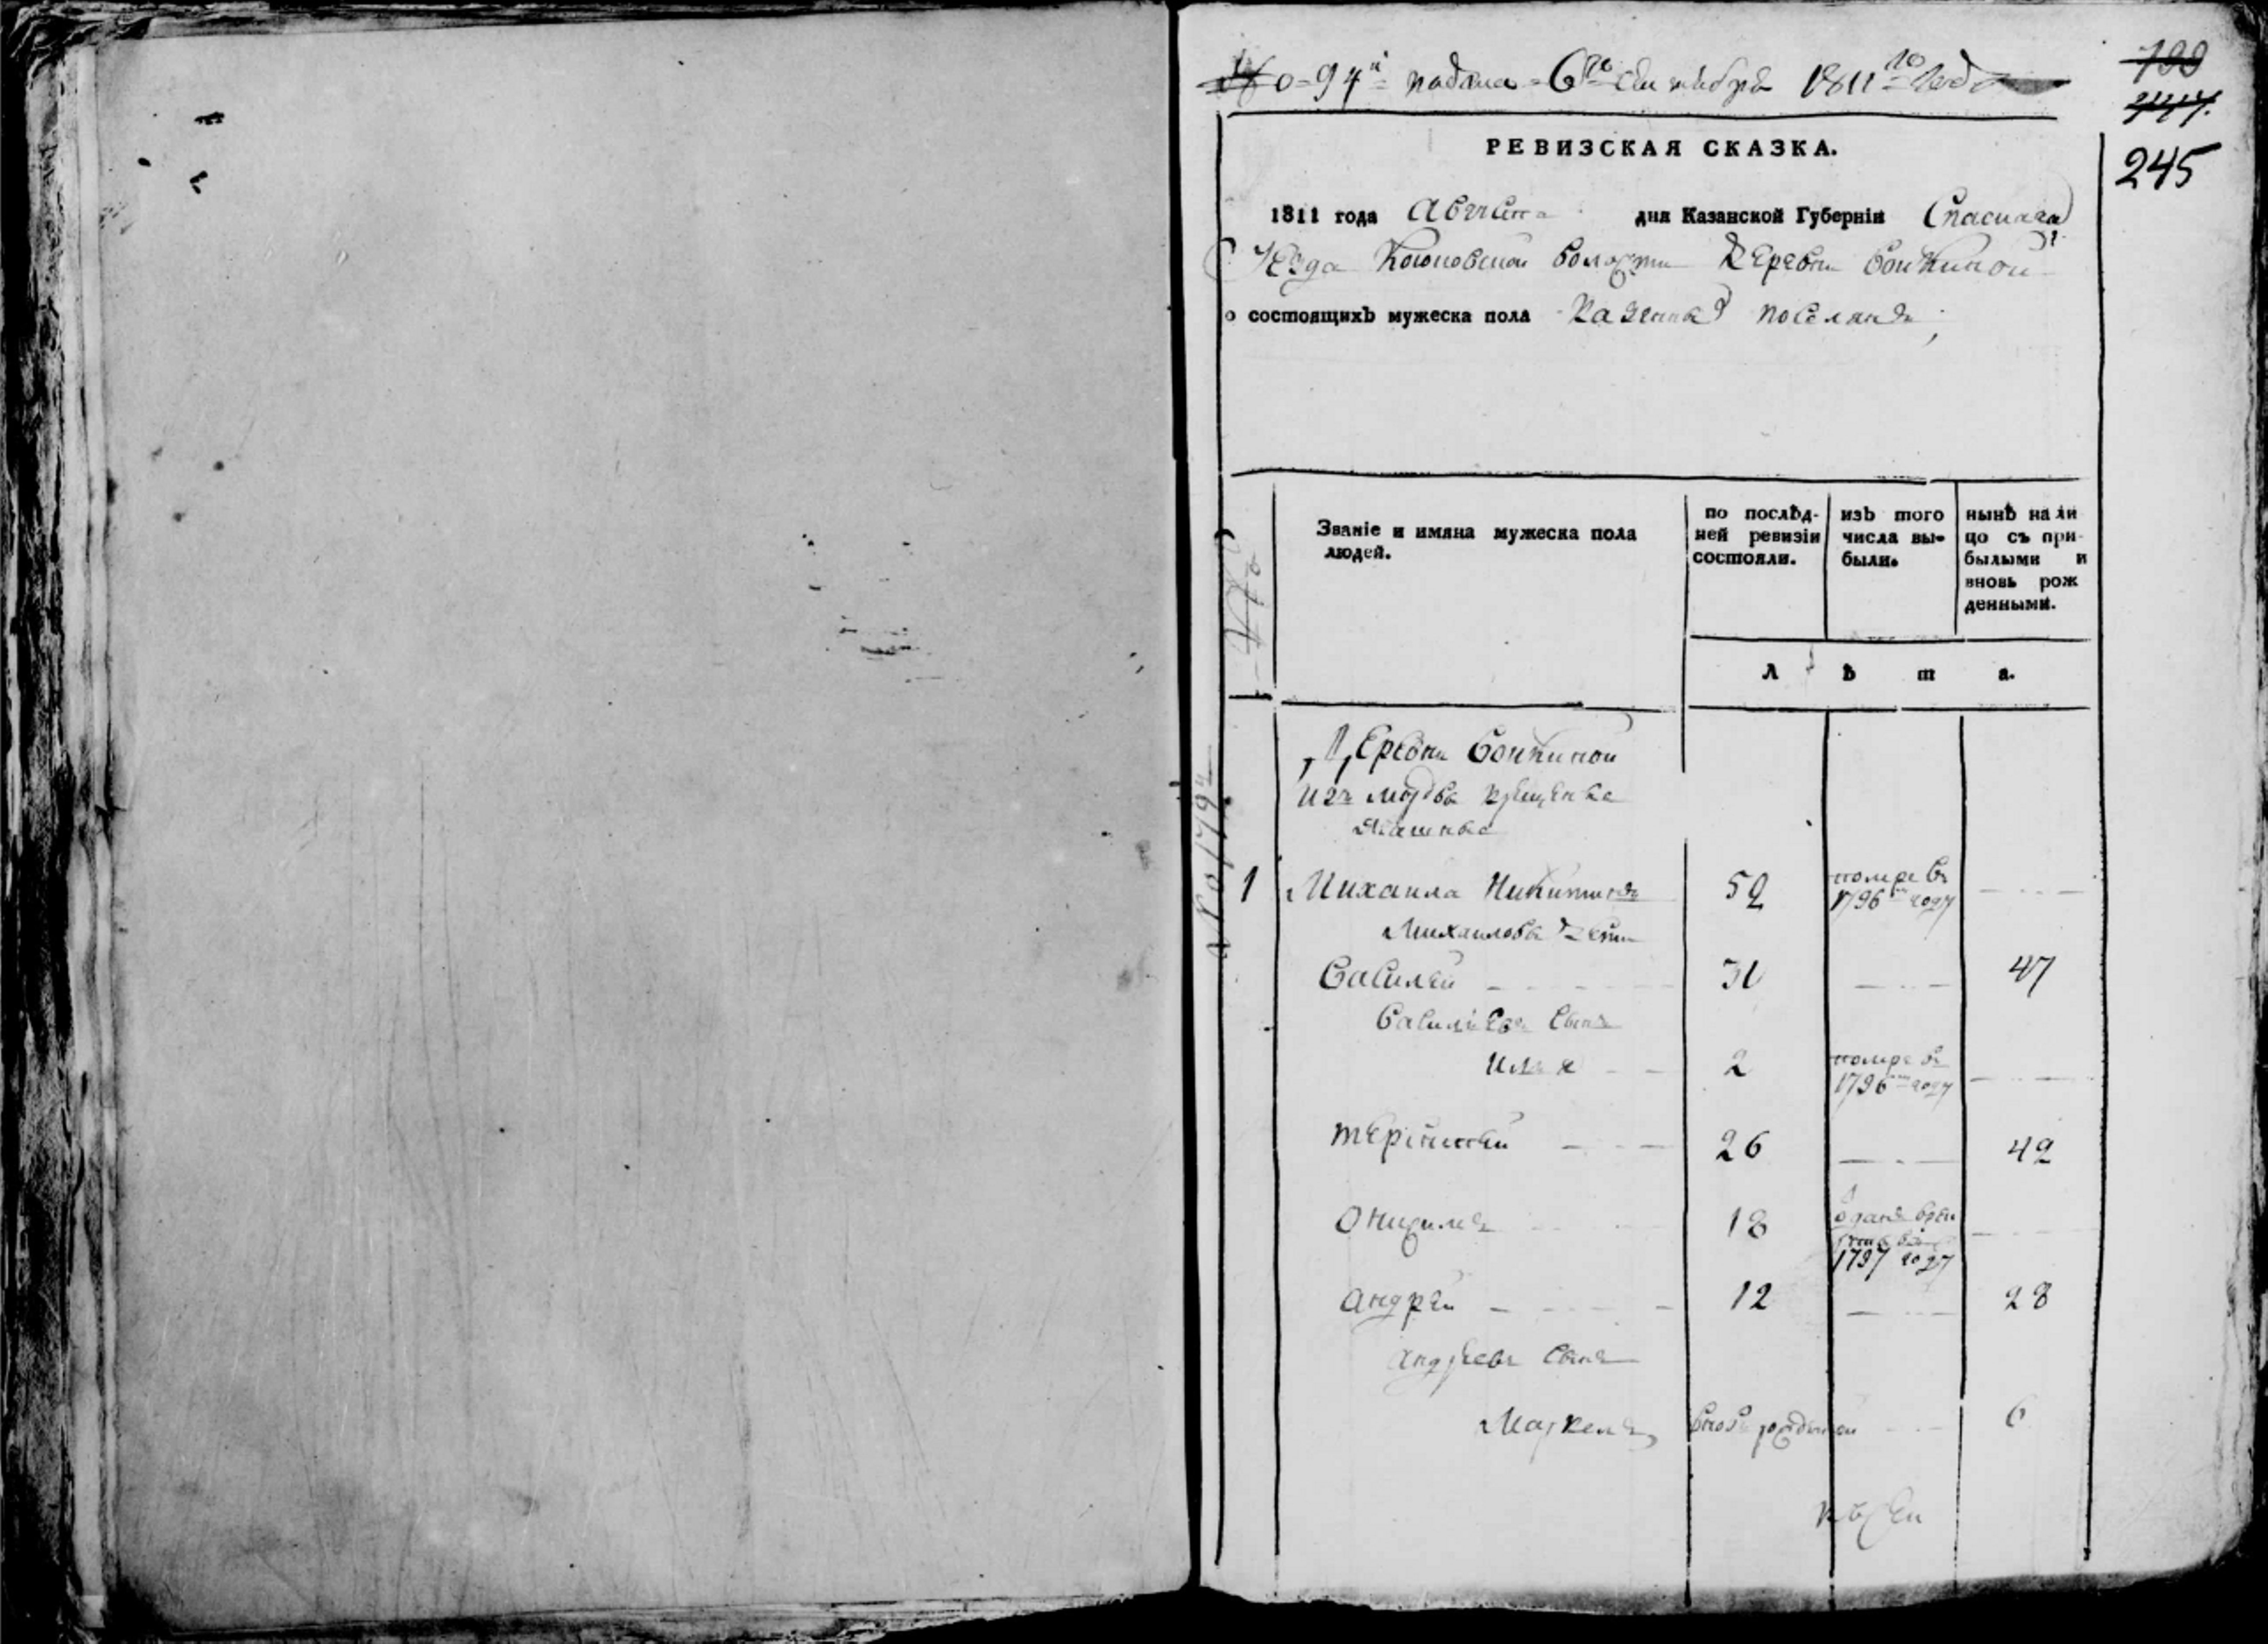 94й подана 6го сентября 1811го года
799
245
РЕВИЗСКАЯ СКАЗКА.
1811 года Августа дня Казанской Губерніи Спаскаго
уезда волости деревни Войкиной
о состоящихъ мужеска пола казенныхъ поселянъ
Званіе и имяна мужеска пола людей.
по послѣд-
ней ревизіи
состояли.
изъ того
числа вы-
были.
нынѣ на ли
цо съ при-
былыми и
вновь рож
денными.
Л ѣ т а.
Деревни Войкиной
изъ мордвы крещеные
ясашные
1 Михаила Никитинъ 52 померъ въ 1796м году
Михайловы дети
Василей 31 47
Васильевъ сынъ
Илья 2 померъ въ 1796м году
Терентей 26 42
Онисимъ 18 отданъ врекруты въ 1797 году
Андрей 12 28
Андреевъ сынъ
Маркелъ вновь рожденной 6